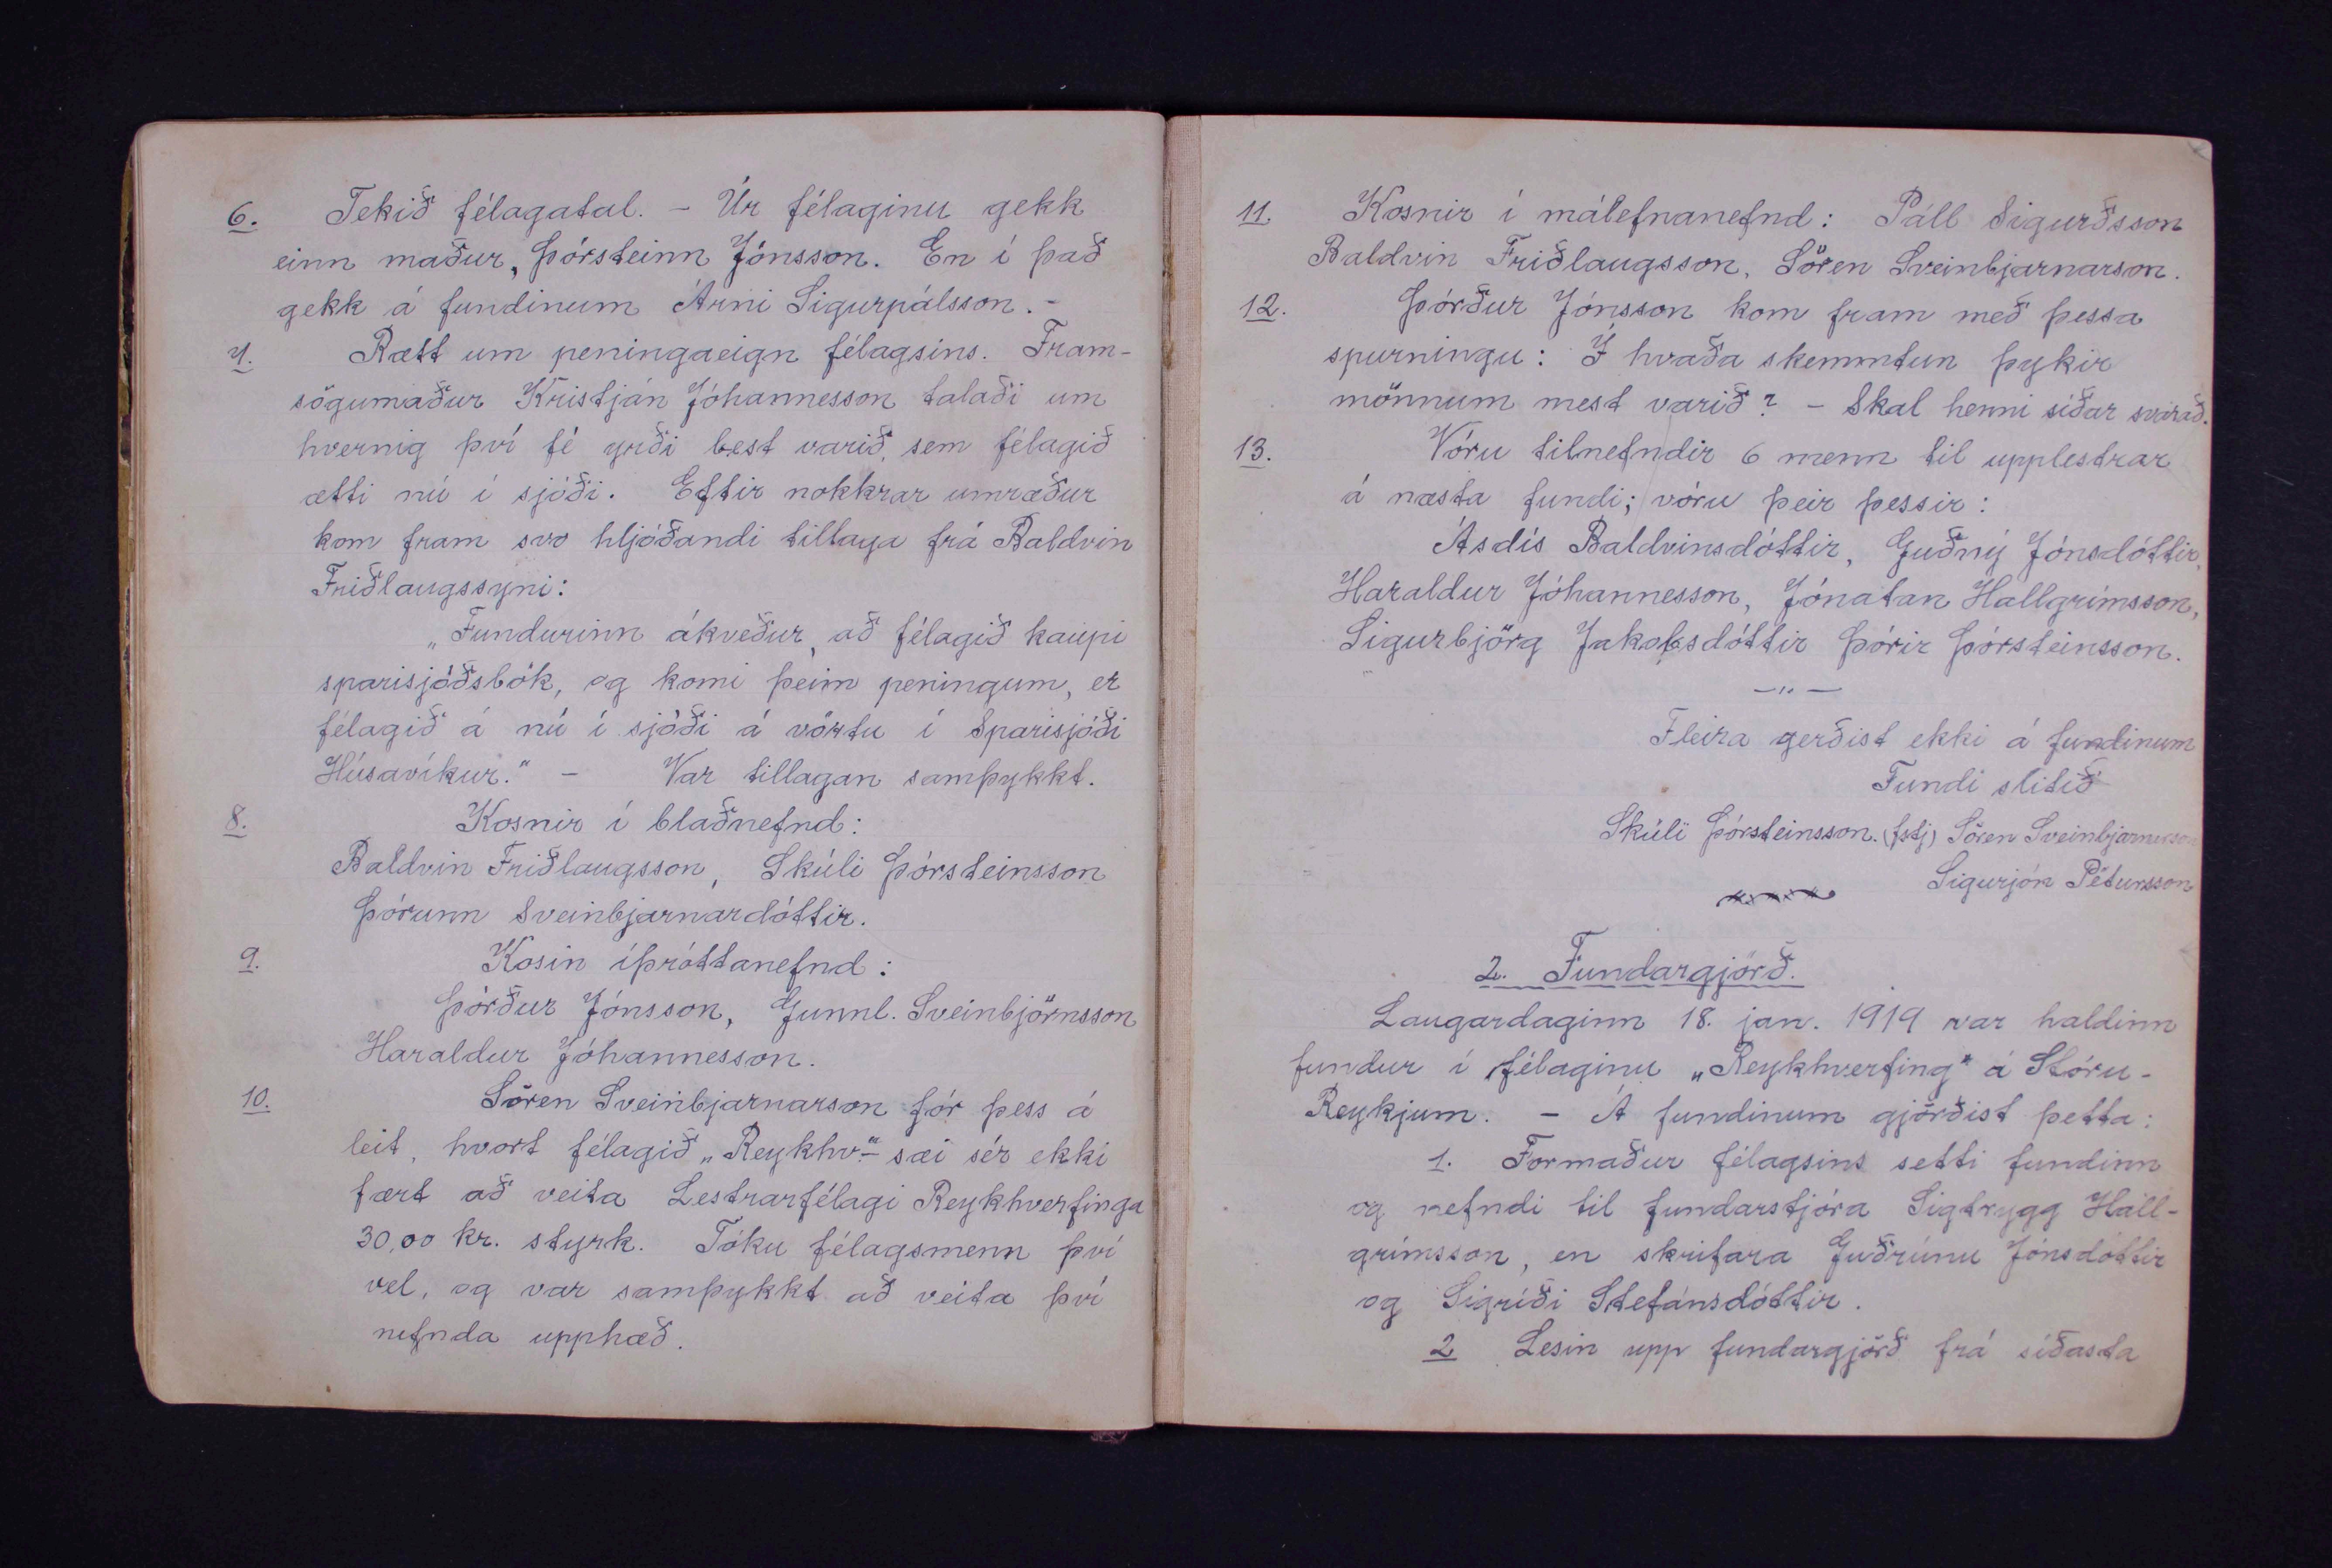 6. Tekið félagatal. - Úr félaginu gekk
einn maður, Þórsteinn Jónsson. En í það
gekk á fundinum Árni Sigurpálsson. -
7. Rætt um peningaeign félagsins. Fram-
sögumaður Kristján Jóhannesson talaði um
hvernig því fé yrði best varið, sem félagið
ætti nú í sjóði. Eftir nokkrar umræður
kom fram svo hljóðandi tillaga frá Baldvin
Friðlaugssyni:
„Fundurinn ákveður, að félagið kaupi
sparisjóðsbók, og komi þeim peningum, er
félagið á nú í sjóði á vöxtu í Sparisjóði
Húsavíkur." - Var tillagan samþykkt.
8. Kosnir í blaðnefnd:
Baldvin Friðlaugsson, Skúli Þórsteinsson
Þórunn Sveinbjarnardóttir.
9. Kosin íþróttanefnd:
Þórður Jónsson, Gunnl. Sveinbjörnsson
Haraldur Jóhannesson.
10. Sören Sveinbjarnarson fór þess á
leit, hvort félagið „Reykhv."- sæi sér ekki
fært að veita Lestrarfélagi Reykhverfinga
30,00 kr. styrk. Tóku félagsmenn því
vel, og var samþykkt að veita því
nefnda upphæð.
11. Kosnir í málefnanefnd: Páll Sigurðsson
Baldvin Friðlaugsson, Sören Sveinbjarnarson.
12. Þórður Jónsson kom fram með þessa
spurningu: Í hvaða skemmtun þykir
mönnum mest varið? - Skal henni síðar svarað.
13. Vóru tilnefndir 6 menn til upplestrar
á næsta fundi; vóru þeir þessir:
Ásdís Baldvinsdóttir, Guðný Jónsdóttir,
Haraldur Jóhannesson, Jónatan Hallgrímsson,
Sigurbjörg Jakobsdóttir Þórir Þórsteinsson.
—"—
Fleira gerðist ekki á fundinum
Fundi slitið
Skúli Þórsteinsson. (fstj) Sören Sveinbjarnarson
Sigurjón Pétursson
2. Fundargjörð.
Laugardaginn 18. jan. 1919 var haldinn
fundur í félaginu „Reykhverfing" á Stóru-
Reykjum. - Á fundinum gjörðist þetta:
1. Formaður félagsins setti fundinn
og nefndi til fundarstjóra Sigtrygg Hall-
grímsson, en skrifara Guðrúnu Jónsdóttir
og Sigríði Stefánsdóttir.
2 Lesin upp fundargjörð frá síðasta